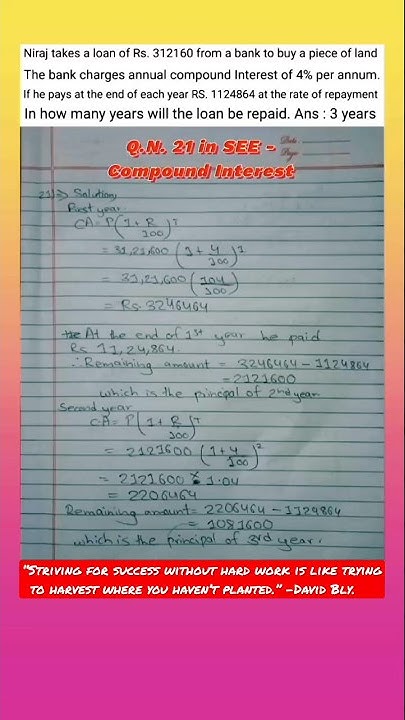 Niraj takes a loan of Rs. 312160 from a bank to buy a piece of land
The bank charges annual compound Interest of 4% per annum.
If he pays at the end of each year RS. 1124864 at the rate of repayment
In how many years will the loan be repaid. Ans : 3 years
Q.N. 21 in SEE -
Compound Interest
Date :
Page :
21 ⇒ Solution,
First year
CA = P(1 + R/100)^T
= 31,21,600 (1 + 4/100)^1
= 31,21,600 (104/100)
= Rs. 3246464
At the end of 1st year he paid
Rs 11,24,864.
∴ Remaining amount = 3246464 - 1124864
= 2121600
which is the principal of 2nd year
Second year
C.A = P(1 + R/100)^T
= 2121600 (1 + 4/100)^2
= 2121600 × 1.04
= 2206464
Remaining amount = 2206464 - 1124864
= 1081600
which is the principal of 3rd year.
"Striving for success without hard work is like trying
to harvest where you haven't planted." -David Bly.